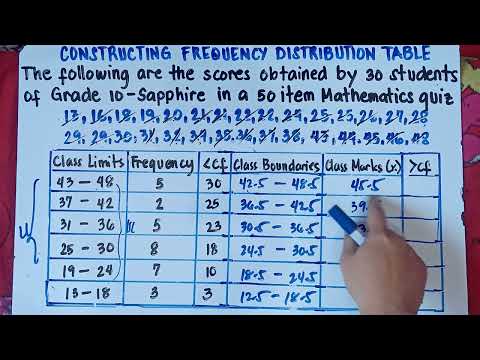 CONSTRUCTING FREQUENCY DISTRIBUTION TABLE
The following are the scores obtained by 30 students
of Grade 10-Sapphire in a 50 item Mathematics quiz
13, 16, 18, 19, 20, 21, 21, 22, 22, 24, 25, 25, 26, 27, 28
29, 29, 30, 31, 32, 34, 35, 36, 37, 38, 43, 44, 45, 46, 48
Class Limits Frequency <cf Class Boundaries Class Marks (x) >cf
43 – 48 5 30 42.5 – 48.5 45.5
37 – 42 2 25 36.5 – 42.5 39.
31 – 36 5 23 30.5 – 36.5 3
25 – 30 8 18 24.5 – 30.5
19 – 24 7 10 18.5 – 24.5
13 – 18 3 3 12.5 – 18.5